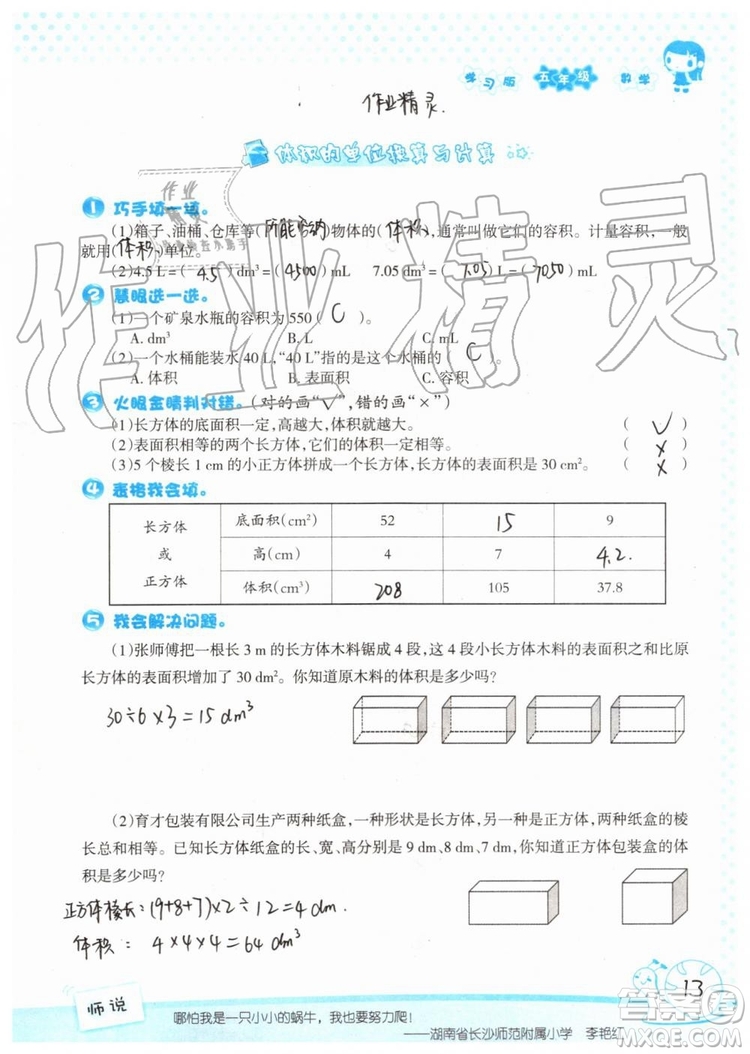 学习版 五年级 数学
作业精灵.
体积的单位换算与计算
1 巧手填一填。
(1)箱子、油桶、仓库等(所能容纳)物体的(体积),通常叫做它们的容积。计量容积,一般
就用(体积)单位。
(2)4.5 L=( 4.5 ) dm³=( 4500 ) mL 7.05 dm³=( 7.05 ) L=( 7050 ) mL
2 慧眼选一选。
(1)一个矿泉水瓶的容积为 550( C )。
A. dm³ B. L C. mL
(2)一个水桶能装水 40 L,“40 L”指的是这个水桶的( C )。
A. 体积 B. 表面积 C. 容积
3 火眼金睛判对错。(对的画“√”,错的画“×”)
(1)长方体的底面积一定,高越大,体积就越大。 ( √ )
(2)表面积相等的两个长方体,它们的体积一定相等。 ( × )
(3)5 个棱长 1 cm 的小正方体拼成一个长方体,长方体的表面积是 30 cm²。 ( × )
4 表格我会填。
长方体或正方体 底面积(cm²) 52 15 9
高(cm) 4 7 4.2
体积(cm³) 208 105 37.8
5 我会解决问题。
(1)张师傅把一根长 3 m 的长方体木料锯成 4 段,这 4 段小长方体木料的表面积之和比原
长方体的表面积增加了 30 dm²。你知道原木料的体积是多少吗?
30÷6×3=15 dm³
(2)育才包装有限公司生产两种纸盒,一种形状是长方体,另一种是正方体,两种纸盒的棱
长总和相等。已知长方体纸盒的长、宽、高分别是 9 dm、8 dm、7 dm,你知道正方体包装盒的体
积是多少吗?
正方体棱长:(9+8+7)×2÷12=4 dm.
体积: 4×4×4=64 dm³
13
师说
哪怕我是一只小小的蜗牛,我也要努力爬!
——湖南省长沙师范附属小学 李艳红
作业精灵
答案圈